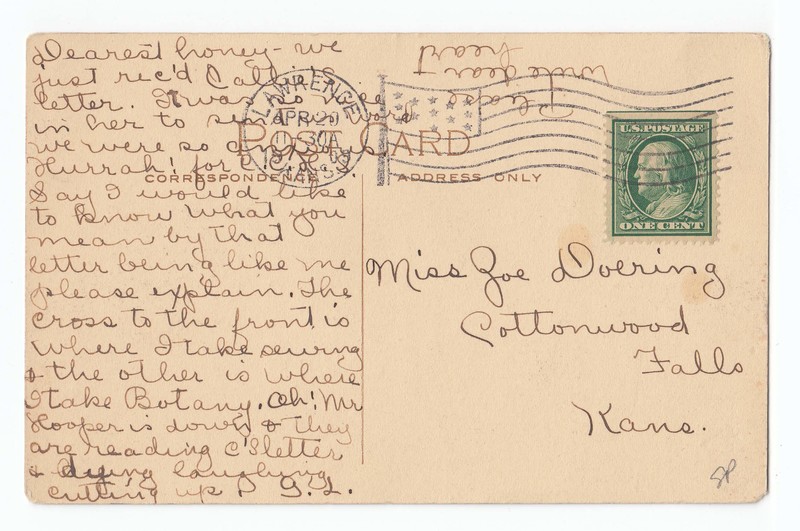 Dearest honey - we
just rec'd
letter. It was so
in her to
we were so
Hurrah! for
Say I would like
to know what you
mean by that
letter being like me
please explain. The
cross to the front is
where I take sewing
& the other is where
I take Botany. Oh! Mr
Hooper is down & they
are reading C's letter
& dying laughing
cutting up. G.L.
Please
write dear
heart
LAWRENCE
APR 20
KANS.
POST CARD
CORRESPONDENCE
ADDRESS ONLY
U.S. POSTAGE
ONE CENT
Miss Zoe Doering
Cottonwood
Falls
Kans.